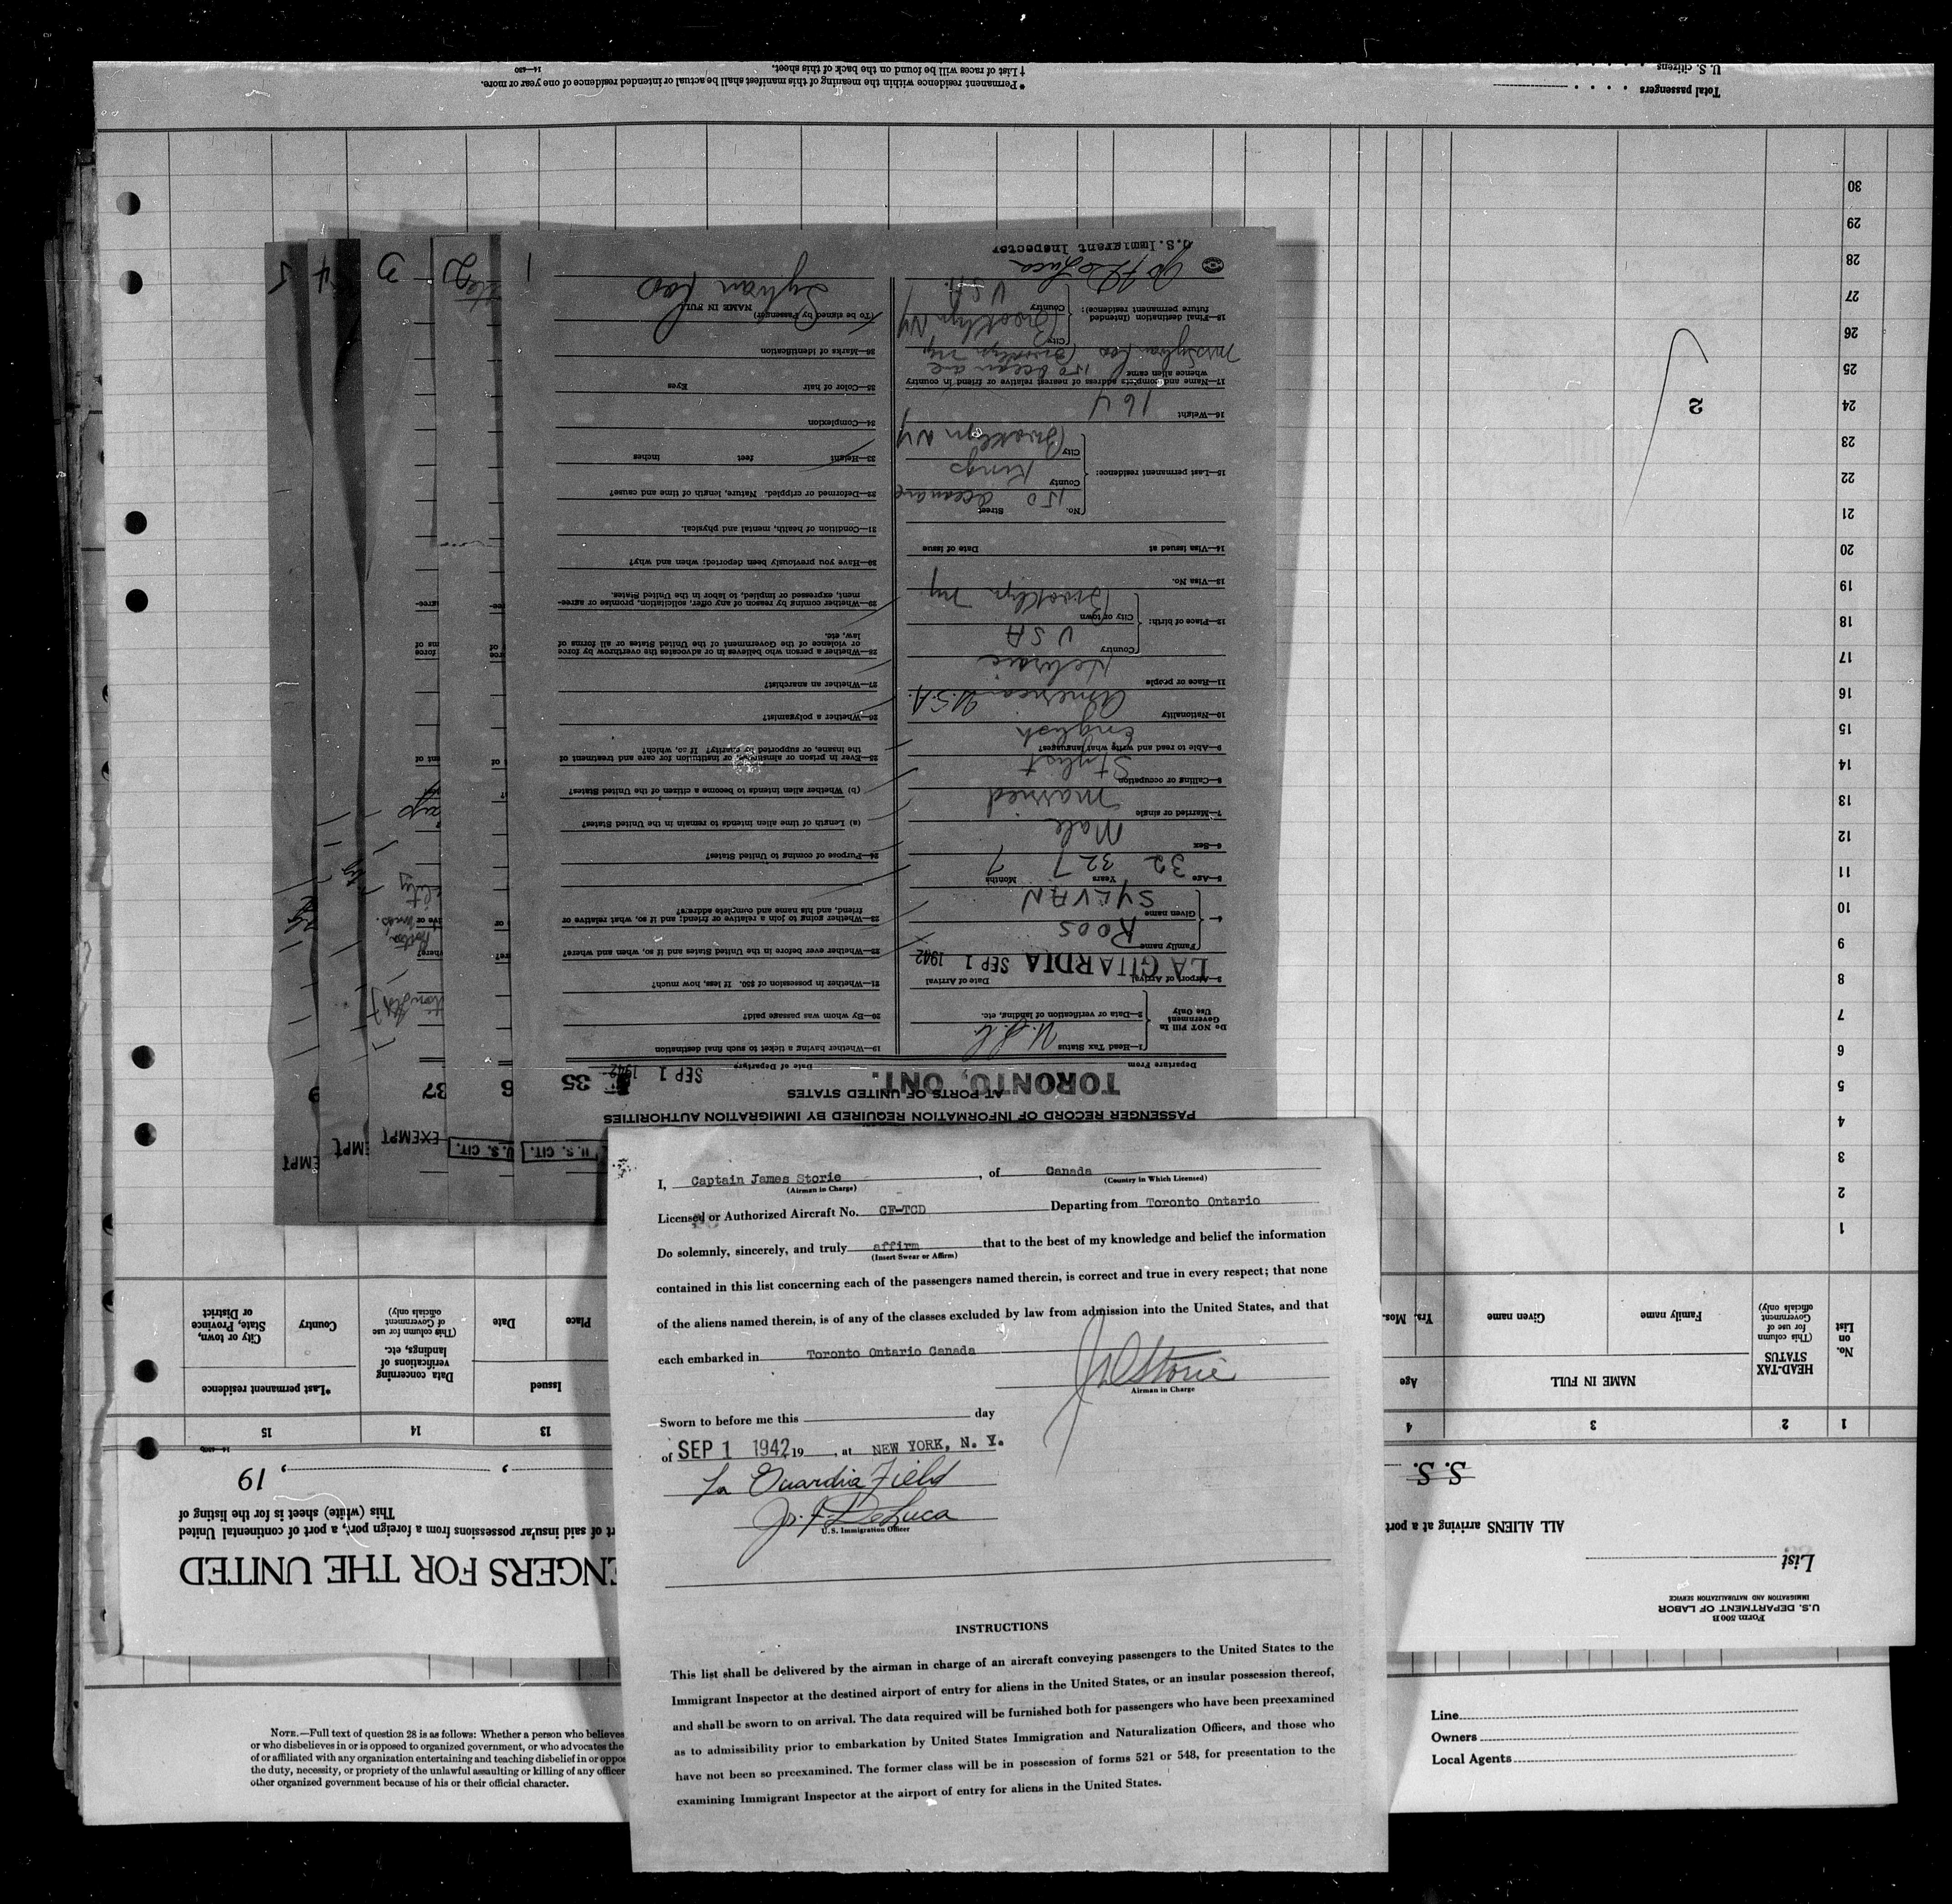 I, Captain James Storie, of Canada
(Airman in Charge) (Country in Which Licensed)
Licensed or Authorized Aircraft No. CF-TCD Departing from Toronto Ontario
Do solemnly, sincerely, and truly affirm that to the best of my knowledge and belief the information
(Insert Swear or Affirm)
contained in this list concerning each of the passengers named therein, is correct and true in every respect; that none
of the aliens named therein, is of any of the classes excluded by law from admission into the United States, and that
each embarked in Toronto Ontario Canada
Airman in Charge
Sworn to before me this day
of SEP 1 1942 19 , at NEW YORK, N. Y.
La Guardia Field
Jo. F. DeLuca
U.S. Immigration Officer
INSTRUCTIONS
This list shall be delivered by the airman in charge of an aircraft conveying passengers to the United States to the
Immigrant Inspector at the destined airport of entry for aliens in the United States, or an insular possession thereof,
and shall be sworn to on arrival. The data required will be furnished both for passengers who have been preexamined
as to admissibility prior to embarkation by United States Immigration and Naturalization Officers, and those who
have not been so preexamined. The former class will be in possession of forms 521 or 548, for presentation to the
examining Immigrant Inspector at the airport of entry for aliens in the United States.
NOTE.—Full text of question 28 is as follows: Whether a person who believes
or who disbelieves in or is opposed to organized government, or who advocates the
of or affiliated with any organization entertaining and teaching disbelief in or oppos
the duty, necessity, or propriety of the unlawful assaulting or killing of any officer
other organized government because of his or their official character.
Line
Owners
Local Agents
PASSENGER RECORD OF INFORMATION REQUIRED BY IMMIGRATION AUTHORITIES
AT PORTS OF UNITED STATES
TORONTO, ONT. SEP 1 1942 35
Departure From Date of Departure
Do NOT Fill In
Government
Use Only
1—Head Tax Status
2—Data or verification of landing, etc.
3—Airport of Arrival Date of Arrival
LA GUARDIA SEP 1 1942
4—
Family name ROOS
Given name SYLVAN
5—Age 32 Years 32 Months 7
6—Sex Male
7—Married or single Married
8—Calling or occupation Stylist
9—Able to read and write what languages? English
10—Nationality American U.S.A.
11—Race or people Hebraic
12—Place of birth: Country USA
City or town Brooklyn NY
13—Visa No.
14—Visa issued at Date of issue
15—Last permanent residence:
No. Street 150 Ocean ave
County Kings
City Brooklyn NY
16—Weight 164
17—Name and complete address of nearest relative or friend in country
whence alien came 150 Ocean ave
Mrs Sylvan Roos Brooklyn NY
18—Final destination (Intended
future permanent residence):
City Brooklyn NY
Country USA.
Jo. F. DeLuca
U.S. Immigrant Inspector
19—Whether having a ticket to such final destination
20—By whom was passage paid?
21—Whether in possession of $50. If less, how much?
22—Whether ever before in the United States and if so, when and where?
23—Whether going to join a relative or friend; and if so, what relative or
friend, and his name and complete address?
24—Purpose of coming to United States?
(a) Length of time alien intends to remain in the United States?
(b) Whether alien intends to become a citizen of the United States?
25—Ever in prison or almshouse, or institution for care and treatment of
the insane, or supported by charity? If so, which?
26—Whether a polygamist?
27—Whether an anarchist?
28—Whether a person who believes in or advocates the overthrow by force
or violence of the Government of the United States or all forms of
law, etc.
29—Whether coming by reason of any offer, solicitation, promise or agree-
ment, expressed or implied, to labor in the United States.
30—Have you previously been deported; when and why?
31—Condition of health, mental and physical.
32—Deformed or crippled. Nature, length of time and cause?
33—Height feet inches
34—Complexion
35—Color of hair Eyes
36—Marks of identification
(To be signed by Passenger)
NAME IN FULL
Sylvan Roos
1 2 3 4 5
U. S. CIT. U. S. CIT. EXEMPT
37
Form 500 B
U.S. DEPARTMENT OF LABOR
IMMIGRATION AND NATURALIZATION SERVICE
List
NGERS FOR THE UNITED
ALL ALIENS arriving at a port
rt of said insular possessions from a foreign port, a port of continental United
This (white) sheet is for the listing of
S. S.
, , 19
1 2 3 4 13 14 15
No.
on
List
HEAD-TAX
STATUS
(This column
for use of
Government
officials only)
NAME IN FULL
Family name Given name
Age
Yrs. Mos.
Issued
Place Date
Data concerning
verifications of
landings, etc.
(This column for use
of Government
officials only)
*Last permanent residence
Country
City or town,
State, Province
or District
1
2
3
4
5
6
7
8
9
10
11
12
13
14
15
16
17
18
19
20
21
22
23
24
25
26
27
28
29
30
2
Total passengers
U. S. citizens
* Permanent residence within the meaning of this manifest shall be actual or intended residence of one year or more.
† List of races will be found on the back of this sheet.